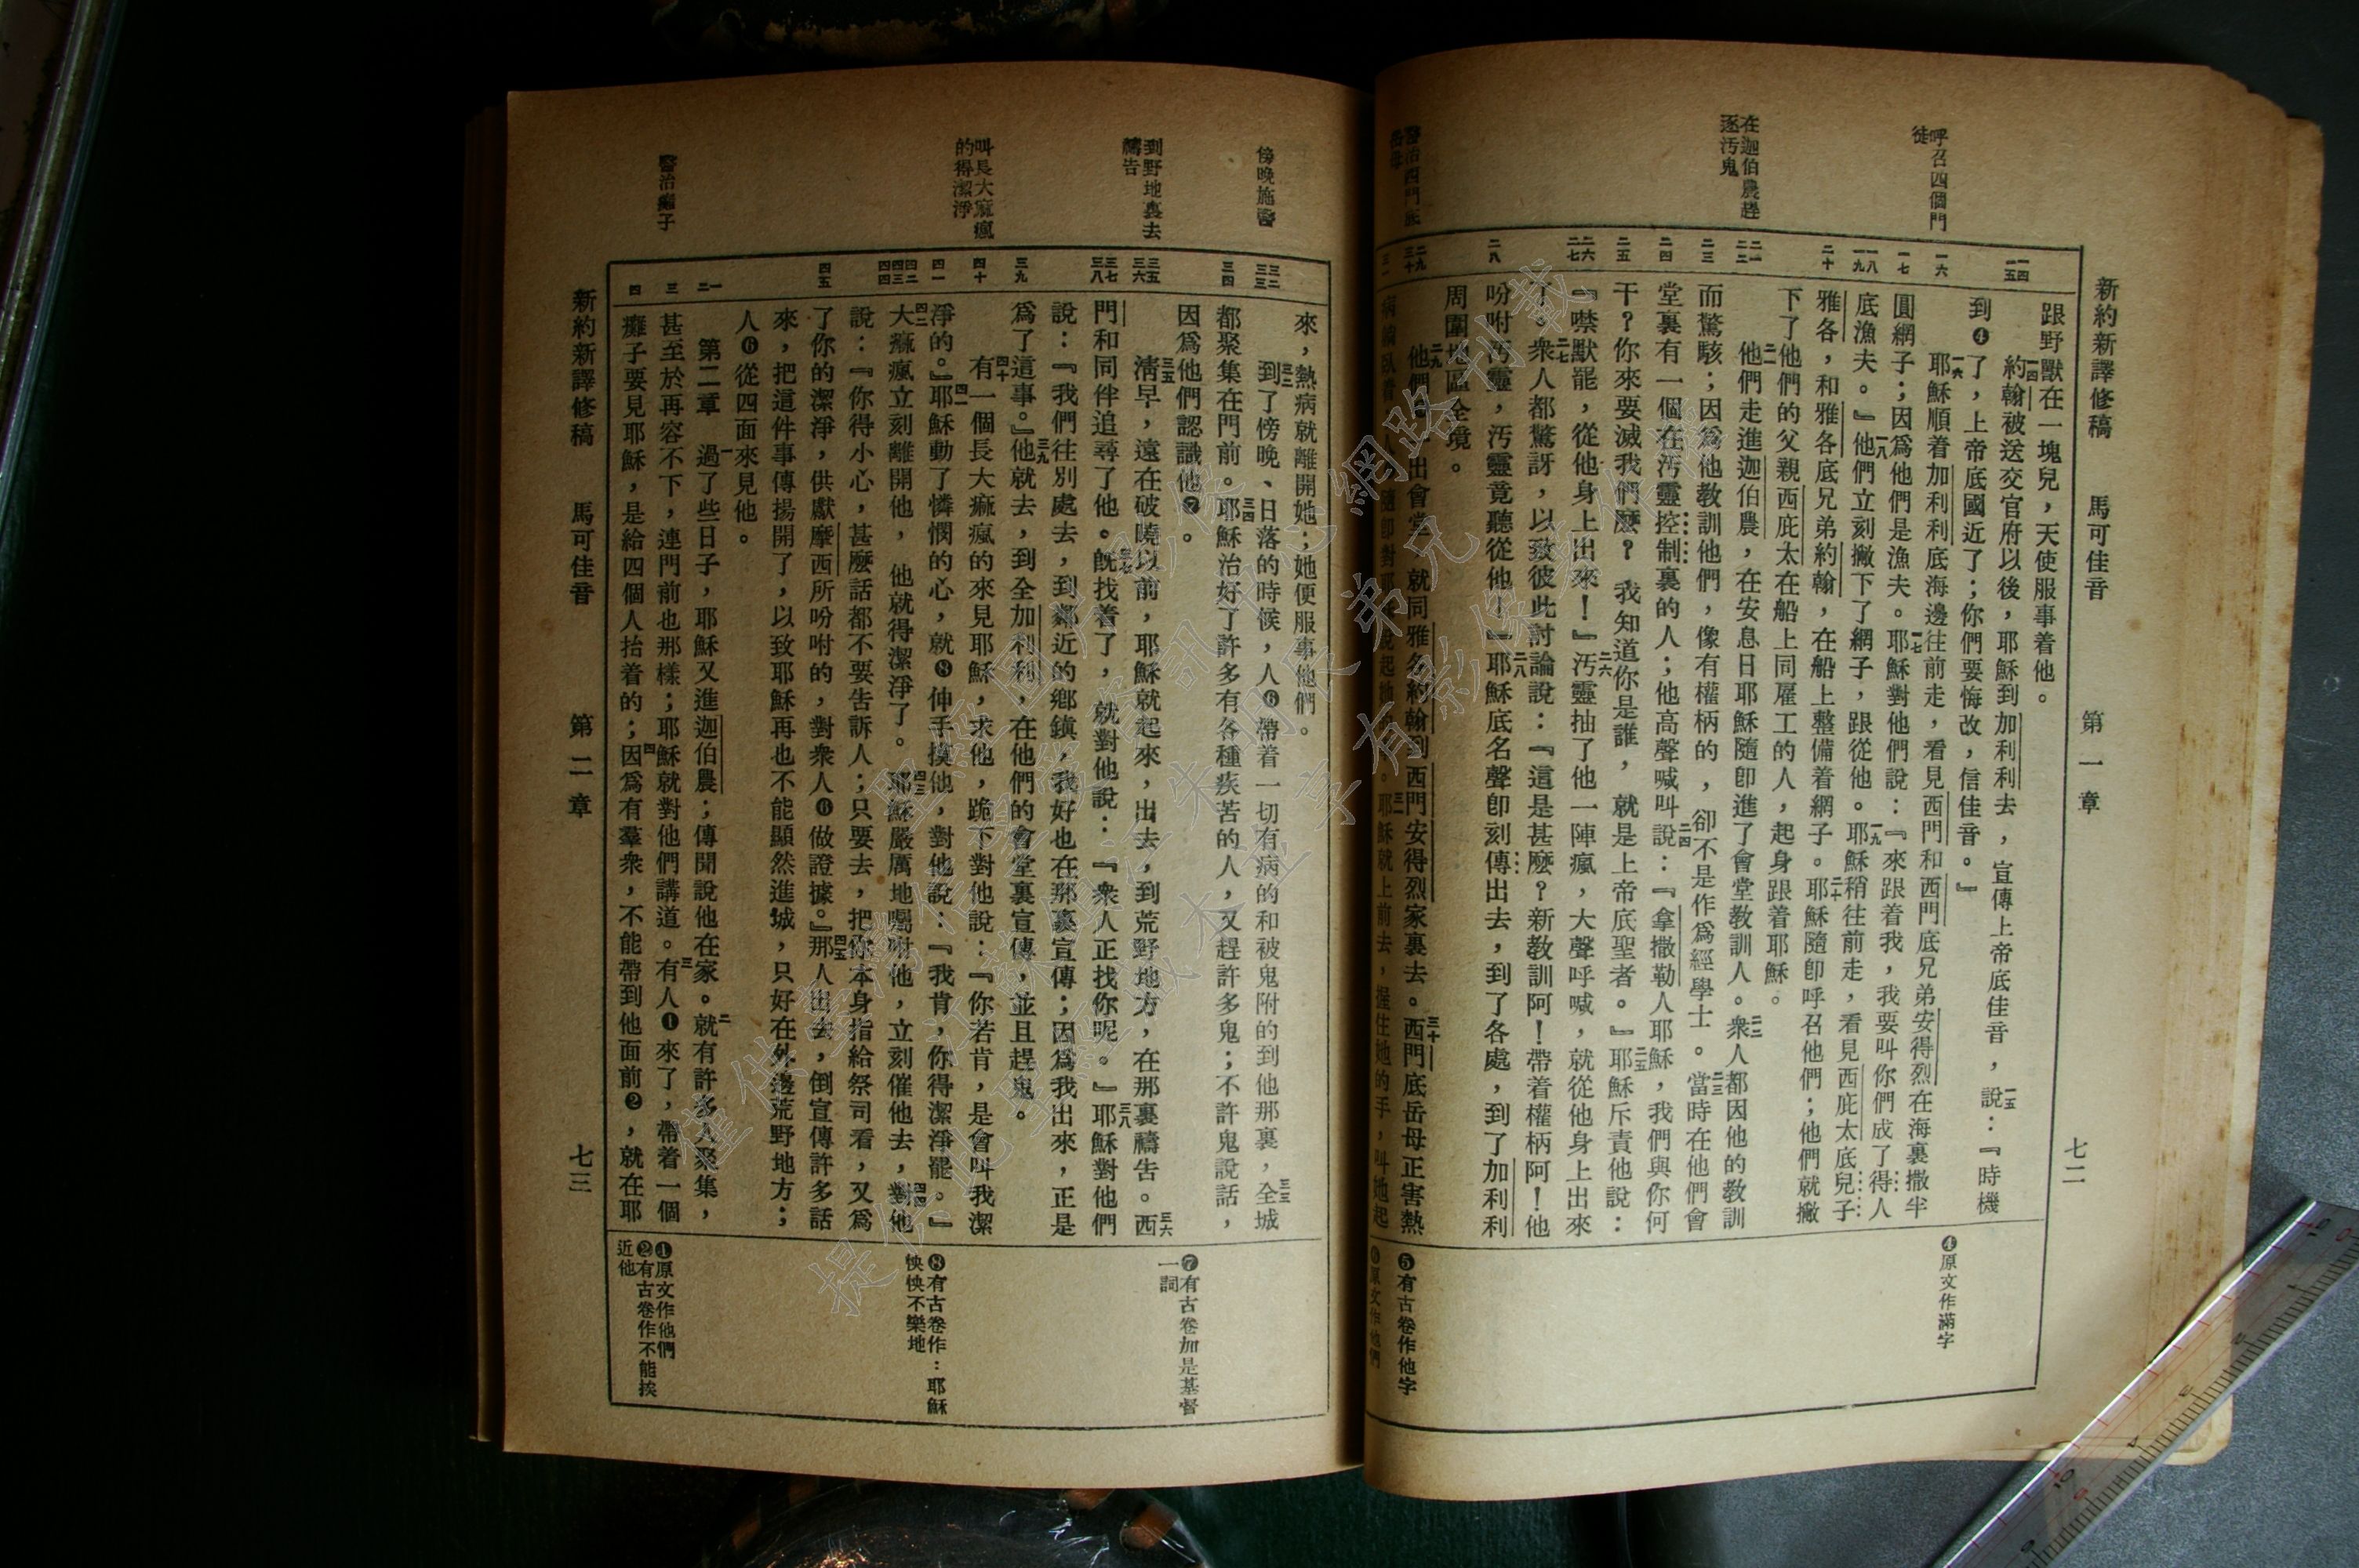 新約新譯修稿　馬可佳音　第一章　七二
呼召四個門徒
在迦伯農趕逐汚鬼
一四
一五
一六
一七
一八
一九
二十
二一
二二
二三
二四
二五
二六
二七
二八
二九
三十
三一
跟野獸在一塊兒，天使服事着他。
一四約翰被送交官府以後，耶穌到加利利去，宣傳上帝底佳音，一五說：『時機
到❹了，上帝底國近了；你們要悔改，信佳音。』
一六耶穌順着加利利底海邊往前走，看見西門和西門底兄弟安得烈在海裏撒半
圓網子；因爲他們是漁夫。一七耶穌對他們說：『來跟着我，我要叫你們成了得人
底漁夫。』一八他們立刻撇下了網子，跟從他。一九耶穌稍往前走，看見西庇太底兒子
雅各，和雅各底兄弟約翰，在船上整備着網子。二十耶穌隨卽呼召他們；他們就撇
下了他們的父親西庇太在船上同雇工的人，起身跟着耶穌。
二一他們走進迦伯農，在安息日耶穌隨卽進了會堂教訓人。二二衆人都因他的教訓
而驚駭；因爲他教訓他們，像有權柄的，卻不是作爲經學士。二三當時在他們會
堂裏有一個在汚靈控制裏的人；他高聲喊叫二四說：『拿撒勒人耶穌，我們與你何
干？你來要滅我們麼？我知道你是誰，就是上帝底聖者。』二五耶穌斥責他說：
『噤默罷，從他身上出來！』二六汚靈抽了他一陣瘋，大聲呼喊，就從他身上出來
了。二七衆人都驚訝，以致彼此討論說：『這是甚麼？新教訓阿！帶着權柄阿！他
吩咐汚靈，汚靈竟聽從他！』二八耶穌底名聲卽刻傳出去，到了各處，到了加利利
周圍地區全境。
二九他們出會堂，就同雅各約翰到西門安得烈家裏去。三十西門底岳母正害熱
❹原文作滿字
❺有古卷作他字
新約新譯修稿　馬可佳音　第二章　七三
傍晚施醫
到野地裏去禱告
叫長大痲瘋的得潔淨
醫治癱子
三二
三三
三四
三五
三六
三七
三八
三九
四十
四一
四二
四三
四四
四五
一
二
三
四
來，熱病就離開她；她便服事他們。
三二到了傍晚、日落的時候，人❻帶着一切有病的和被鬼附的到他那裏，三三全城
都聚集在門前。三四耶穌治好了許多有各種疾苦的人，又趕許多鬼；不許鬼說話，
因爲他們認識他❼。
三五淸早，遠在破曉以前，耶穌就起來，出去，到荒野地方，在那裏禱告。三六西
門和同伴追尋了他。三七旣找着了，就對他說：『衆人正找你呢。』三八耶穌對他們
說：『我們往別處去，到鄰近的鄉鎮，我好也在那裏宣傳；因爲我出來，正是
爲了這事。』三九他就去，到全加利利，在他們的會堂裏宣傳，並且趕鬼。
四十有一個長大痲瘋的來見耶穌，求他，跪下對他說：『你若肯，是會叫我潔
淨的。』四一耶穌動了憐憫的心，就❽伸手摸他，對他說：『我肯，你得潔淨罷。』
四二大痲瘋立刻離開他，他就得潔淨了。四三耶穌嚴厲地囑咐他，立刻催他去，四四對他
說：『你得小心，甚麼話都不要告訴人；只要去，把你本身指給祭司看，又爲
了你的潔淨，供獻摩西所吩咐的，對衆人❻做證據。』四五那人出去，倒宣傳許多話
來，把這件事傳揚開了，以致耶穌再也不能顯然進城，只好在外邊荒野地方；
人❻從四面來見他。
第二章　一過了些日子，耶穌又進迦伯農；傳聞說他在家。二就有許多人聚集，
甚至於再容不下，連門前也那樣；耶穌就對他們講道。三有人❶來了，帶着一個
癱子要見耶穌，是給四個人抬着的；四因爲有羣衆，不能帶到他面前❷，就在耶
❼有古卷加是基督一詞
❽有古卷作：耶穌怏怏不樂地
❶原文作他們
❷有古卷作不能挨近他